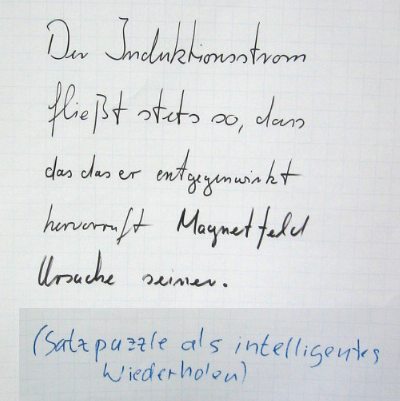 Der Induktionsstrom
fließt stets so, dass
das das er entgegenwirkt
hervorruft Magnetfeld
Ursache seiner.
(Satzpuzzle als intelligentes
Wiederholen)